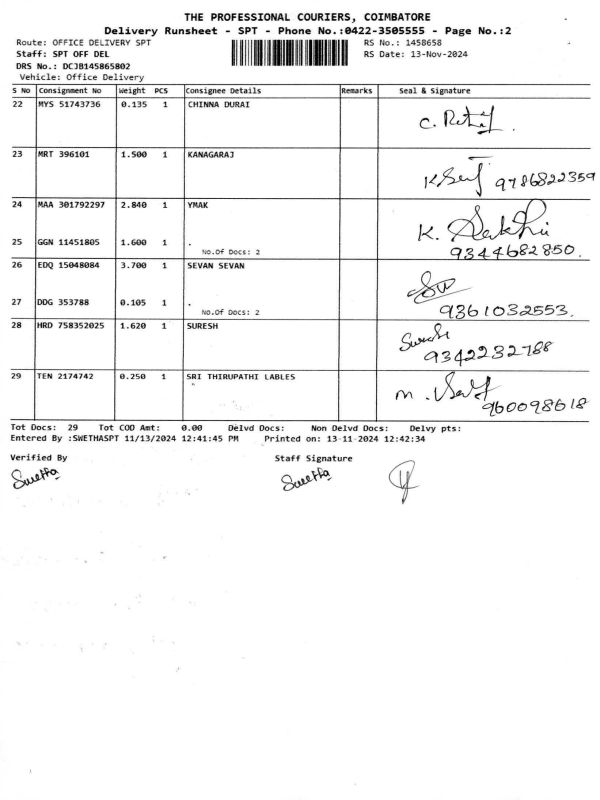 THE PROFESSIONAL COURIERS, COIMBATORE
Delivery Runsheet - SPT - Phone No.:0422-3505555 - Page No.:2
Route: OFFICE DELIVERY SPT RS No.: 1458658
Staff: SPT OFF DEL RS Date: 13-Nov-2024
DRS No.: DCJB145865802
Vehicle: Office Delivery
S No Consignment No Weight PCS Consignee Details Remarks Seal & Signature
22 MYS 51743736 0.135 1 CHINNA DURAI
C.
23 MRT 396101 1.500 1 KANAGARAJ
9786822359
24 MAA 301792297 2.840 1 YMAK
K. Sakthi
25 GGN 11451805 1.600 1 .
No.Of Docs: 2 9344682850.
26 EDQ 15048084 3.700 1 SEVAN SEVAN
27 DDG 353788 0.105 1 .
No.Of Docs: 2 9361032553.
28 HRD 758352025 1.620 1 SURESH
Suresh
9342232788
29 TEN 2174742 0.250 1 SRI THIRUPATHI LABLES
M.
960098618
Tot Docs: 29 Tot COD Amt: 0.00 Delvd Docs: Non Delvd Docs: Delvy pts:
Entered By :SWETHASPT 11/13/2024 12:41:45 PM Printed on: 13-11-2024 12:42:34
Verified By Staff Signature
Swetha Swetha